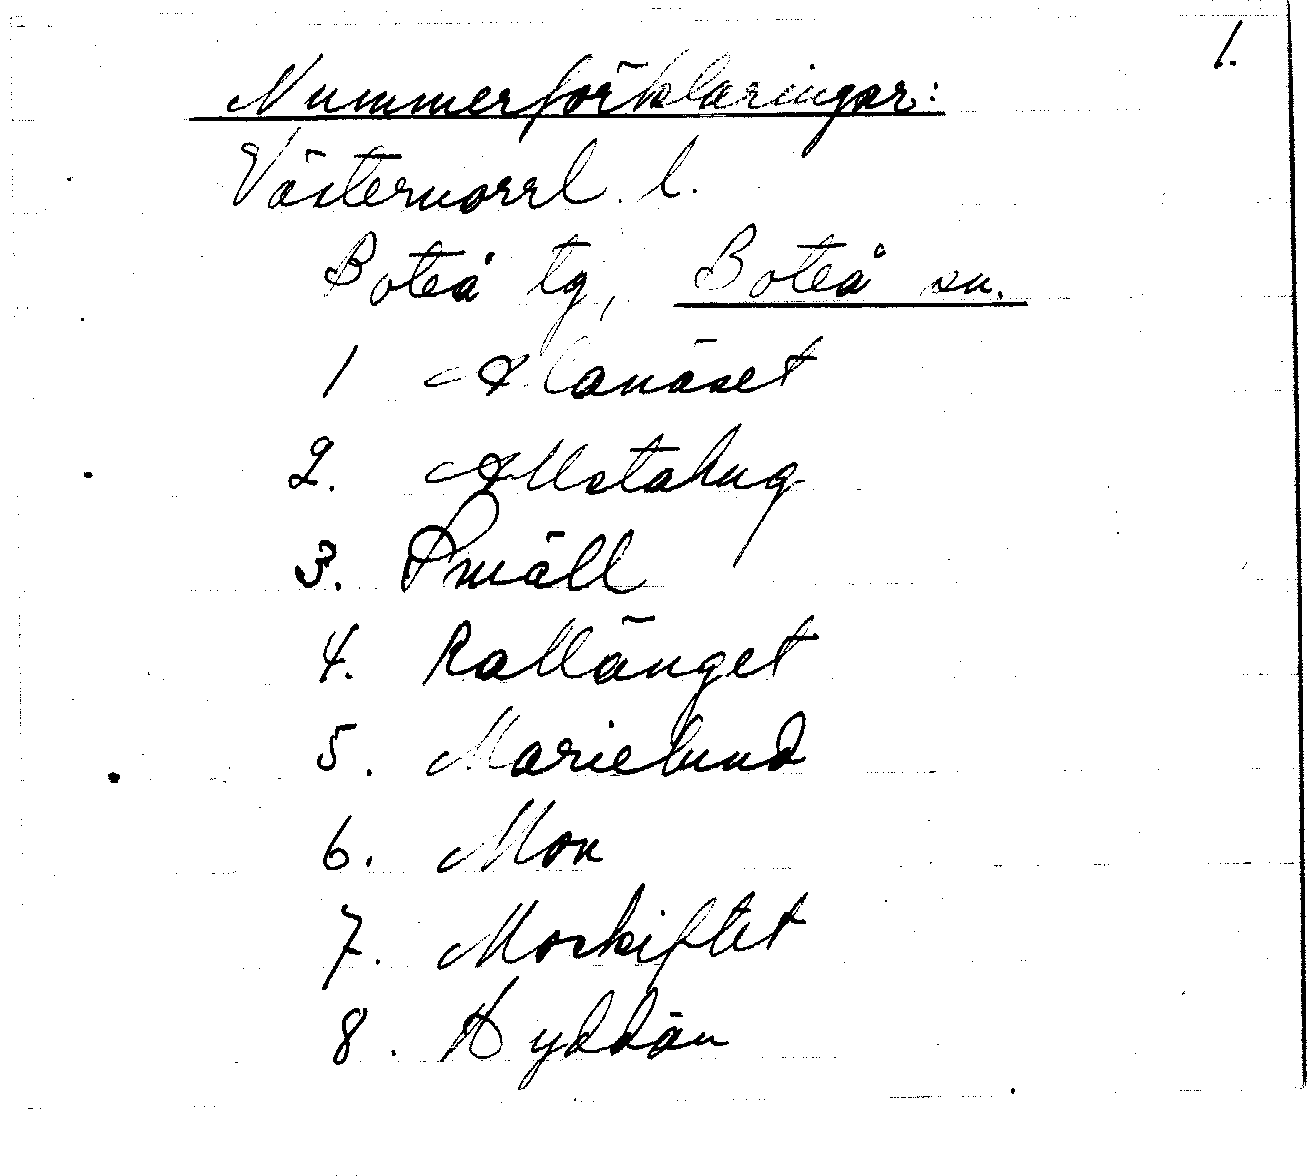 1.
Nummerförklaringar:
Västernorrl. l.
Boteå tg, Boteå sn.
1 Alanäset
2. Allstahug
3. Småll
4. Rallänget
5. Marielund
6. Mon
7. Moskiftet
8. Hyddån